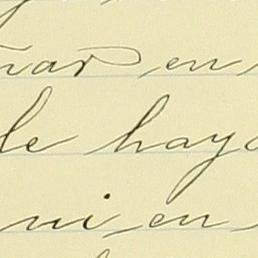 ñar en
le haya
ni en